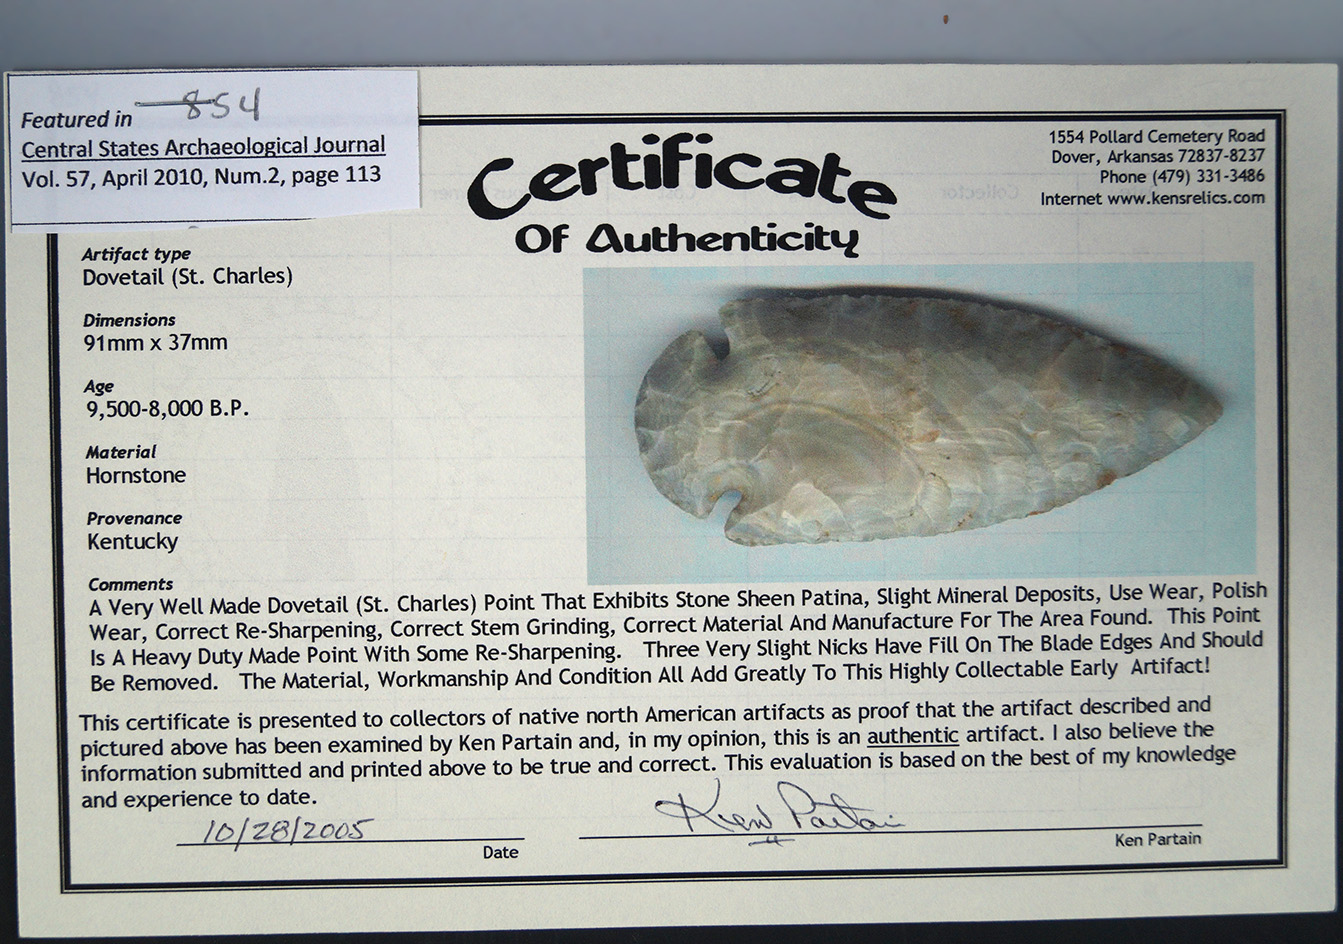 854
Featured in
Central States Archaeological Journal
Vol. 57, April 2010, Num.2, page 113
Certificate
Of Authenticity
1554 Pollard Cemetery Road
Dover, Arkansas 72837-8237
Phone (479) 331-3486
Internet www.kensrelics.com
Artifact type
Dovetail (St. Charles)
Dimensions
91mm x 37mm
Age
9,500-8,000 B.P.
Material
Hornstone
Provenance
Kentucky
Comments
A Very Well Made Dovetail (St. Charles) Point That Exhibits Stone Sheen Patina, Slight Mineral Deposits, Use Wear, Polish
Wear, Correct Re-Sharpening, Correct Stem Grinding, Correct Material And Manufacture For The Area Found. This Point
Is A Heavy Duty Made Point With Some Re-Sharpening. Three Very Slight Nicks Have Fill On The Blade Edges And Should
Be Removed. The Material, Workmanship And Condition All Add Greatly To This Highly Collectable Early Artifact!
This certificate is presented to collectors of native north American artifacts as proof that the artifact described and
pictured above has been examined by Ken Partain and, in my opinion, this is an authentic artifact. I also believe the
information submitted and printed above to be true and correct. This evaluation is based on the best of my knowledge
and experience to date.
10/28/2005
Date
Ken Partain
Ken Partain